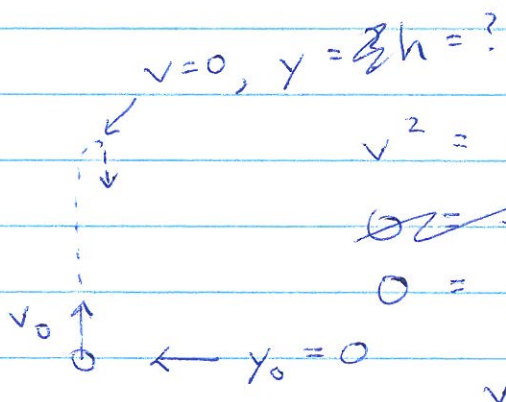 v=0, y = h = ?
v² =
0 =
0 =
v₀
y₀ = 0
v